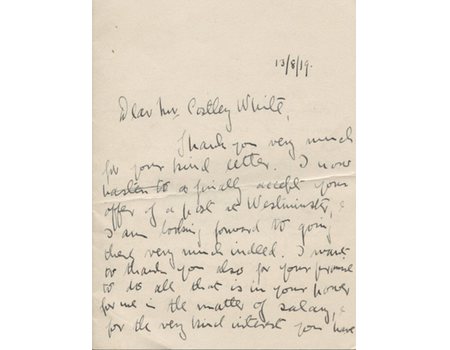 13/8/19.
Dear Mr. Costley White,
Thank you very much
for your kind letter. I now
hasten to a finall accept your
offer of a post at Westminster, &
I am looking forward to going
there very much indeed. I want
to thank you also for your promise
to do all that is in your power
for me in the matter of salary, &
for the very kind interest you have